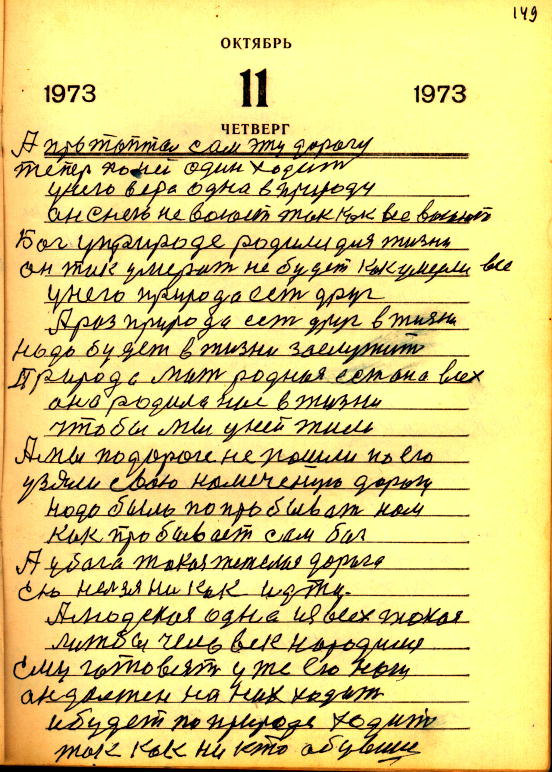 149
ОКТЯБРЬ
1973 11 1973
ЧЕТВЕРГ
А протоптал сам эту дорогу
тепер по ней один ходит
у него вера одна в природу
он с нею не воюет так как все воюют
Бог у природе родили для жизни
он так умерат не будет как умерли все
у него природа ест друг
А раз природа ест друг в жизни
надо будет в жизни заслужит
Природа мат родная ест она всех
она родила нас в жизни
чтобы мы у ней жили
А мы по дороге не пошли по его
узяли свою намеченую дорогу
надо было попробыват нам
как пробывает сам бог
А у бога такая тежелая дорога
Ею нелзя ни как идти.
А людская одна из всех такая
лиж бы человек народился
Ему готовят уже его ногу
он должен на них ходит
и будет по природе ходит
так как ни кто обувши